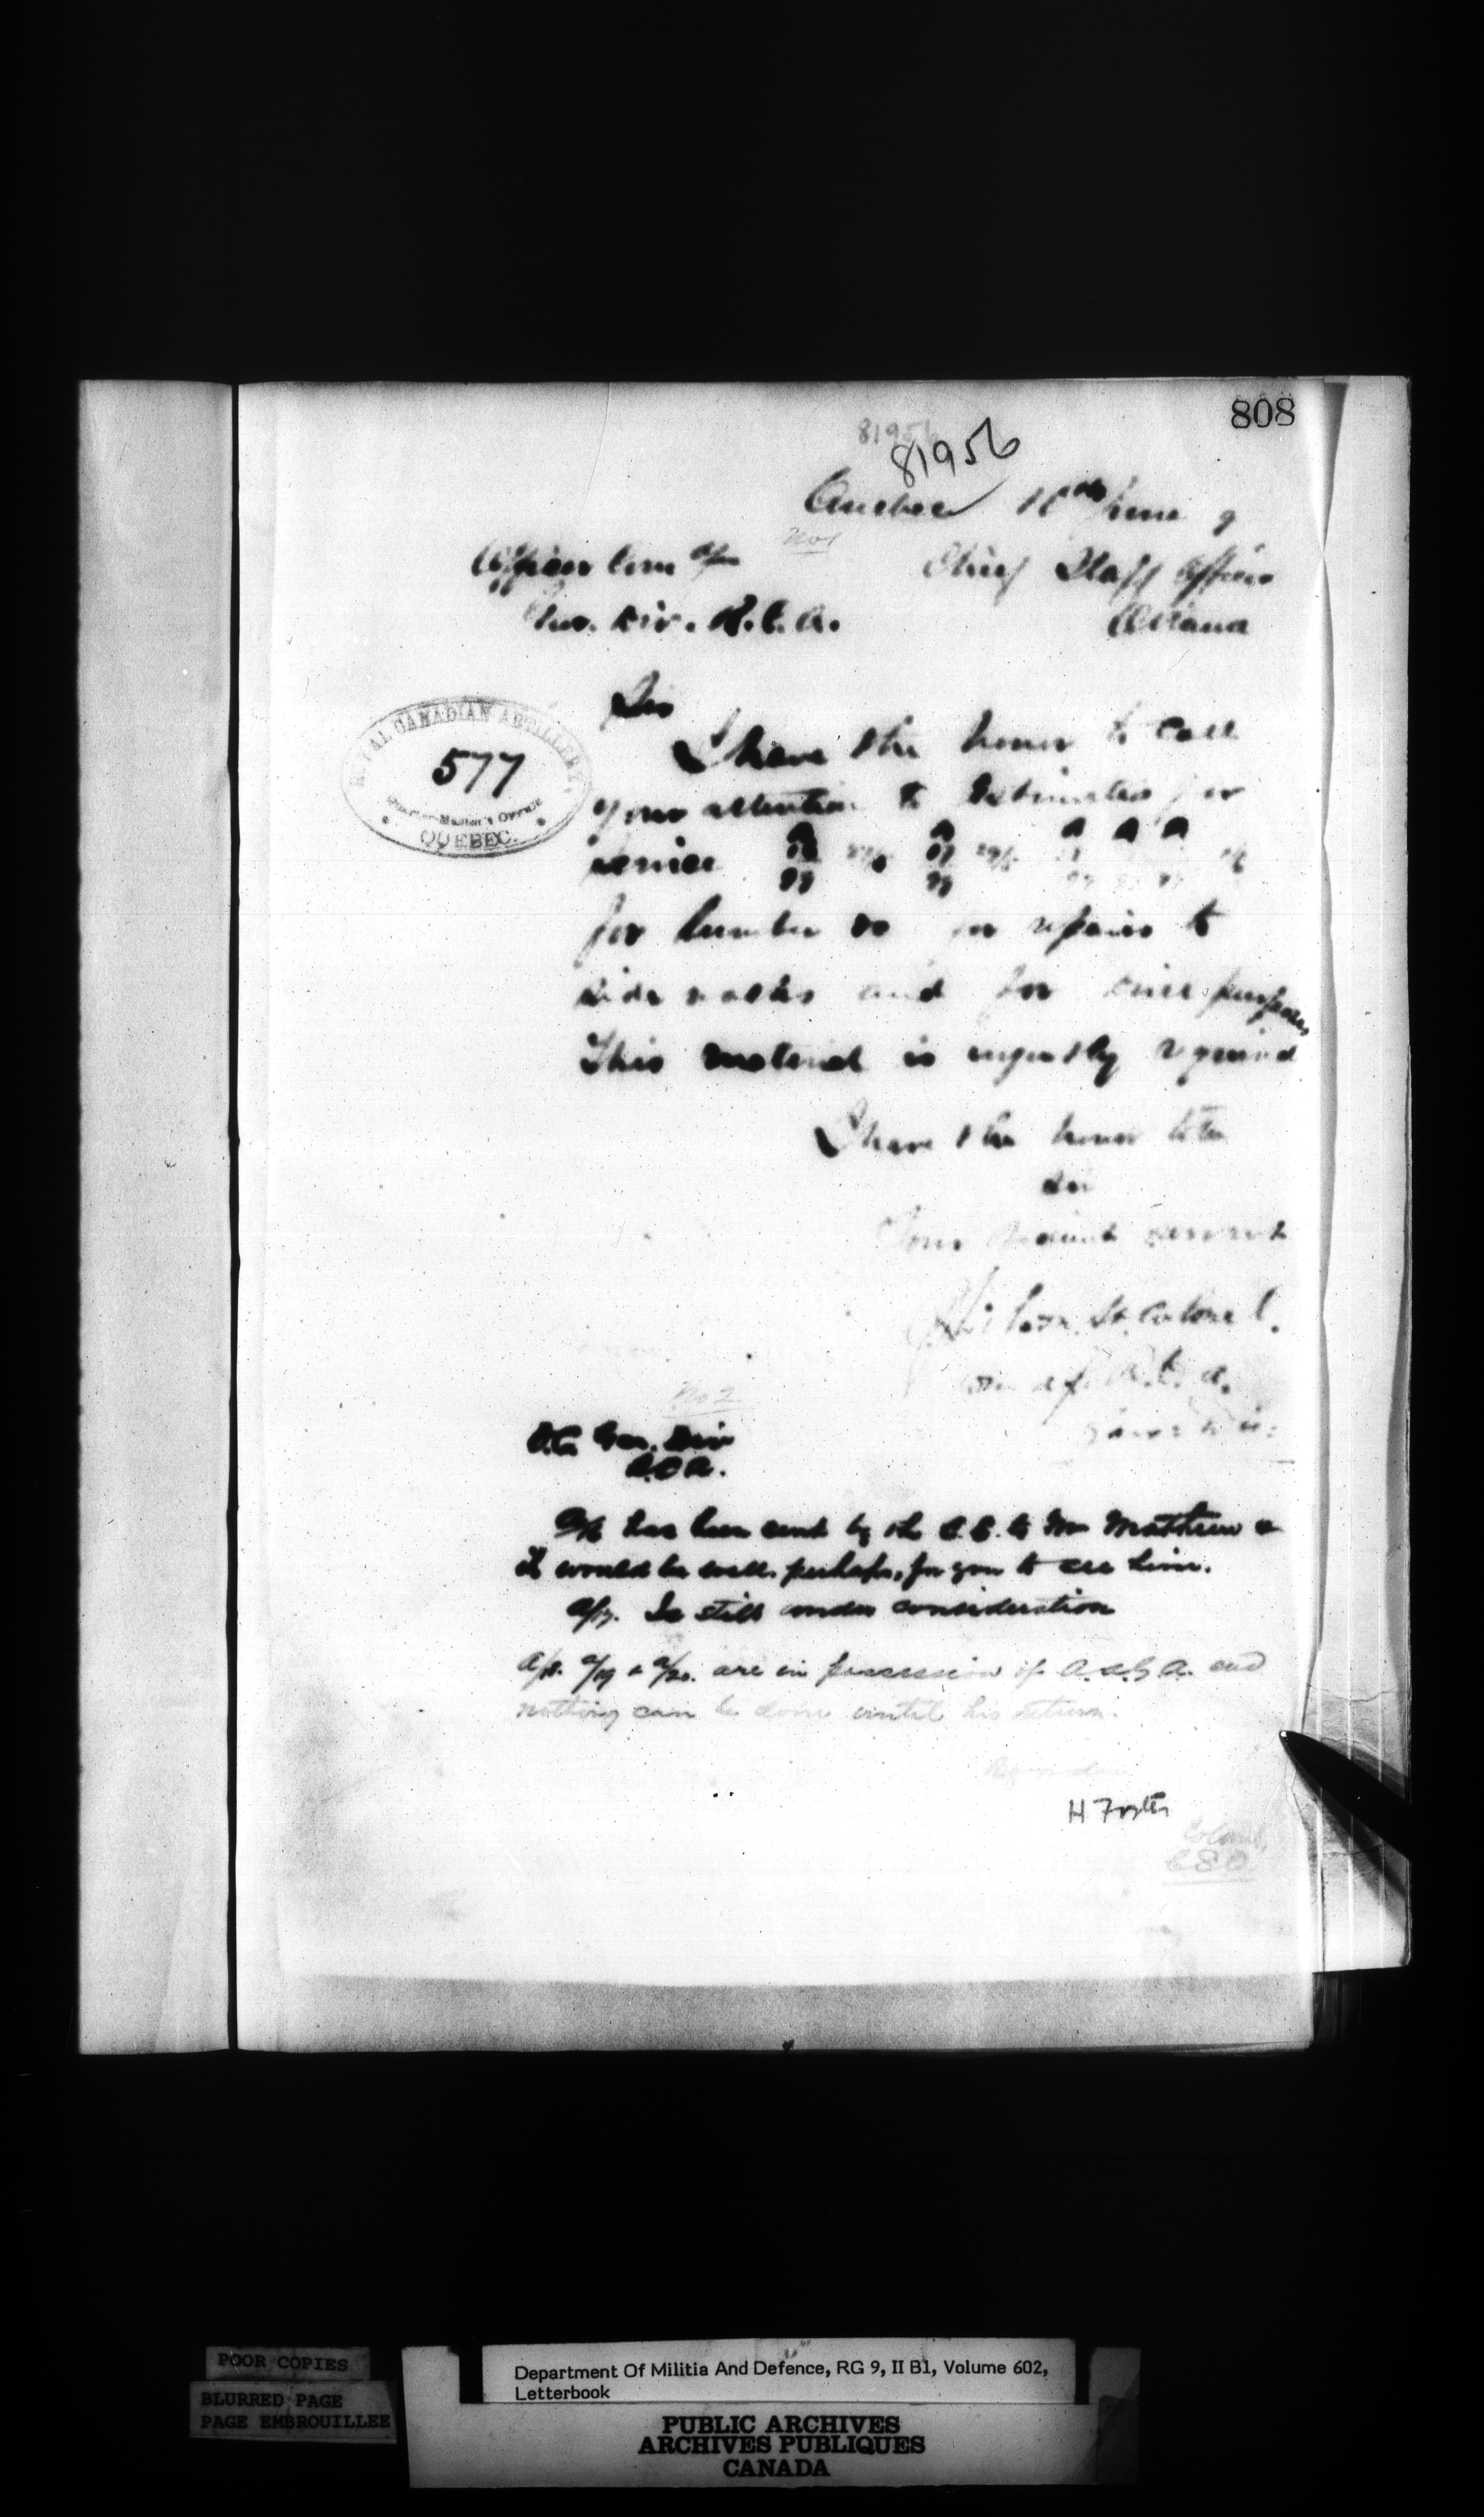 808
81956
81956
Quebec 10th June 9
No 1
Officer Com dg Chief Staff Officer
Gar. Div. R.C.A. Ottawa
ROYAL CANADIAN ARTILLERY
577
Quarter-Master's Office
QUEBEC.
Sir
I have the honor to call
your attention to Estimates for
service
for lumber &c for repairs to
side walks and for purposes
This material is urgently required
I have the honor to be
Sir
Your obedient servant
Wilson Lt. Colonel.
R.C.A.
No 2
O.C. Gar. Div
R.C.A.
has been sent by the C.E. to Mr Matthew &
it would be well, perhaps, for you to see him.
A/17. Is still under consideration
A/18. A/19 & A/20. are in possession of A.A.G.A. and
nothing can be done until his return.
H Foster
Colonel,
C S O.
POOR COPIES
BLURRED PAGE
PAGE EMBROUILLEE
Department Of Militia And Defence, RG 9, II B1, Volume 602,
Letterbook
PUBLIC ARCHIVES
ARCHIVES PUBLIQUES
CANADA